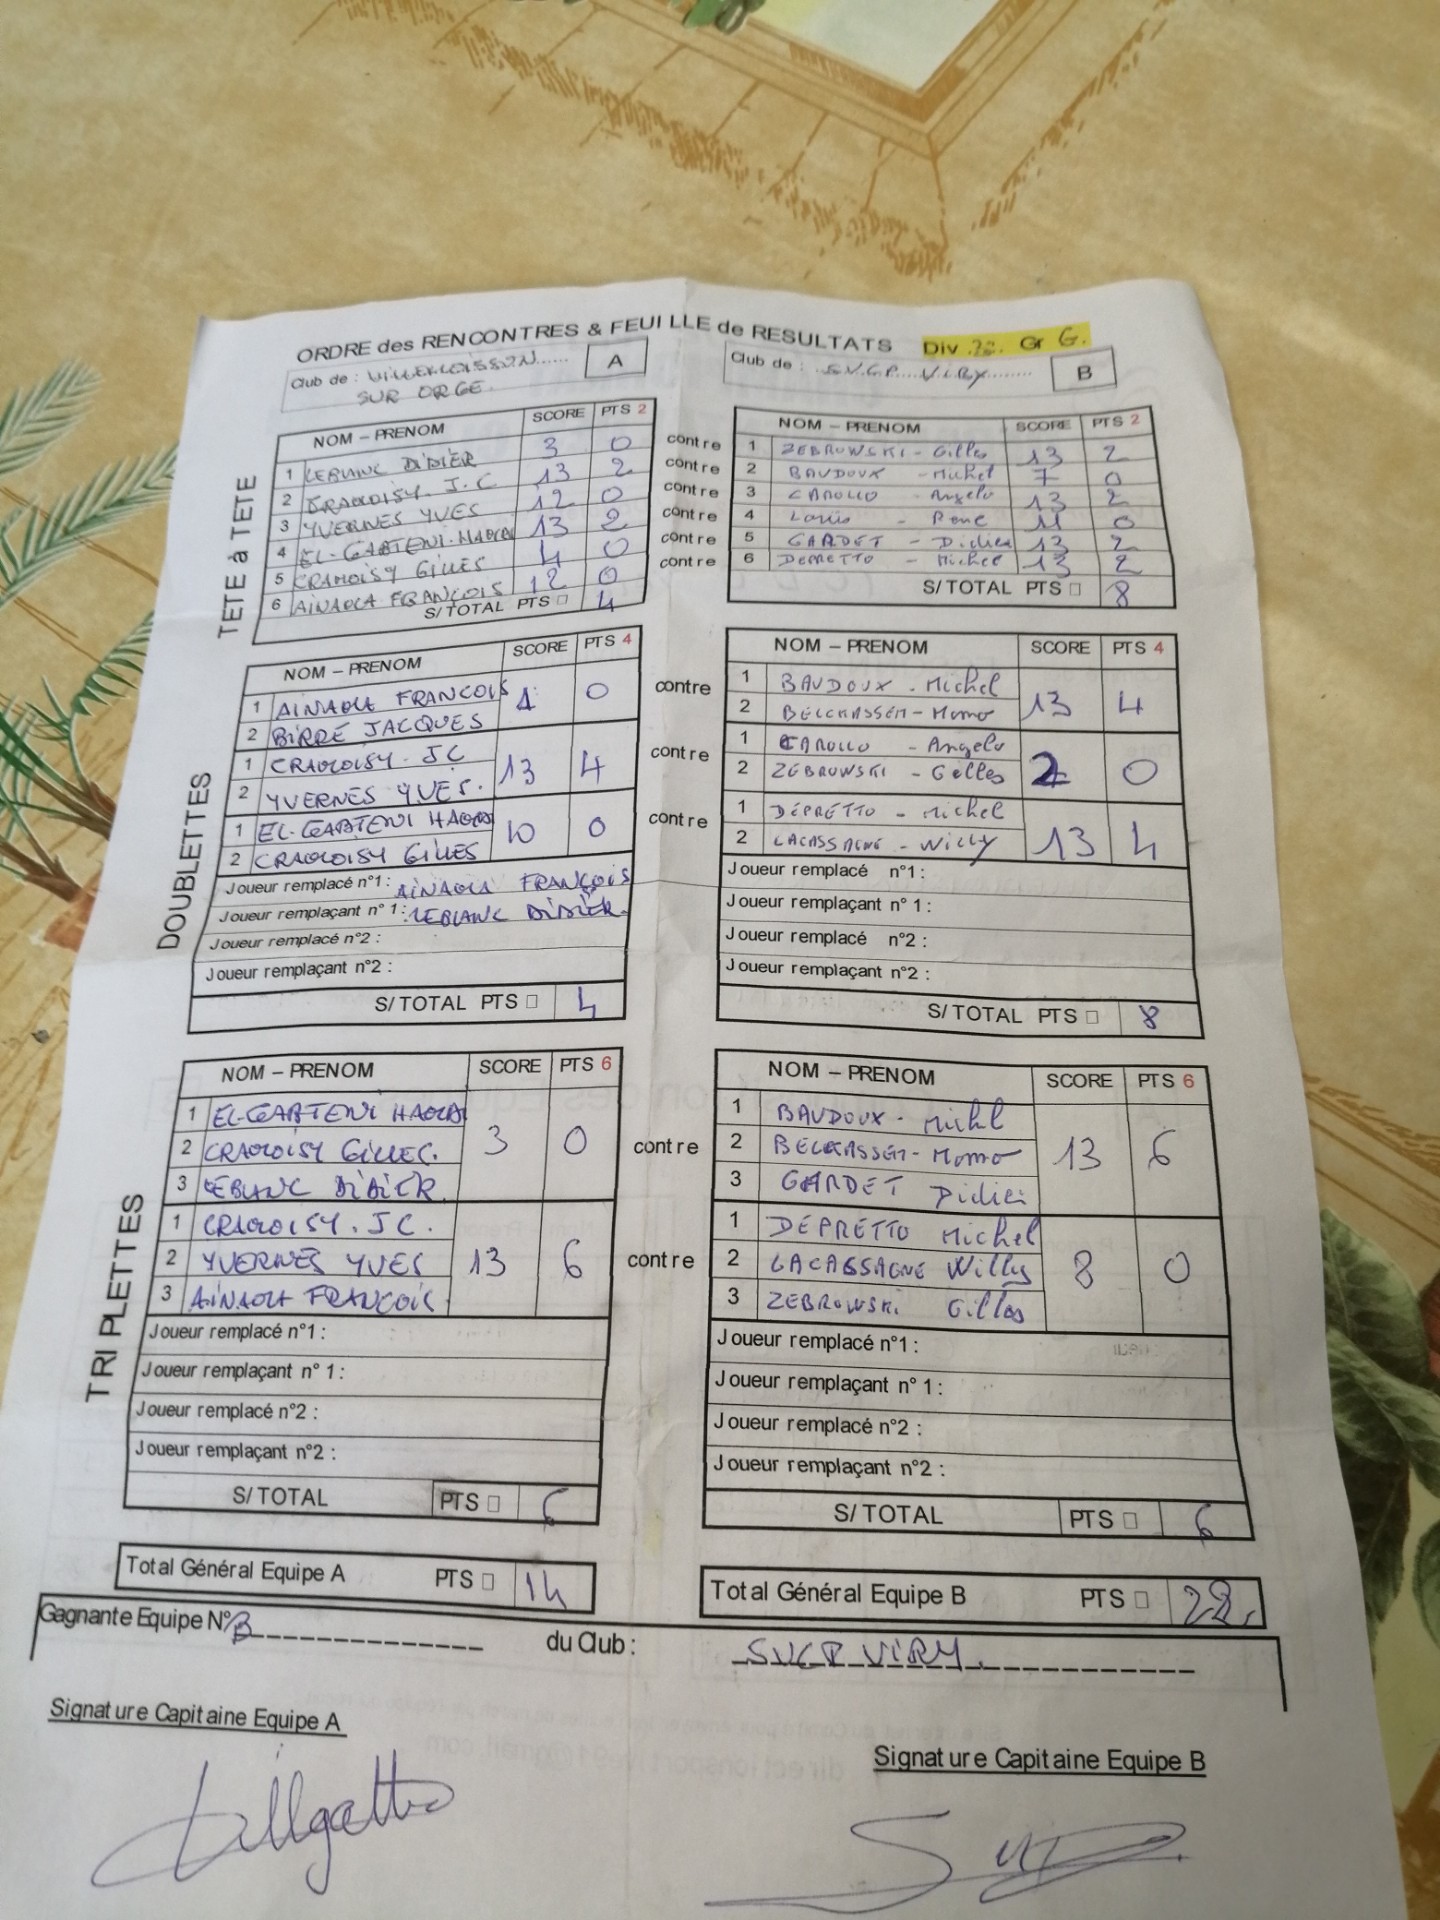 ORDRE des RENCONTRES & FEUILLE de RESULTATS Div 22 Gr G.
Club de : VILLEMOISSON SUR ORGE A
Club de : S.V.C.P. VIRY B
TETE à TETE
NOM – PRENOM SCORE PTS 2 contre NOM – PRENOM SCORE PTS 2
1 LEBLANC DIDIER 3 0 contre 1 ZEBROWSKI - Gilles 13 2
2 CRAMOISY. J.C 13 2 contre 2 BAUDOUX - Michel 7 0
3 YVERNES YVES 12 0 contre 3 CAROLLO - Angelo 13 2
4 EL-GARTENI. 13 2 contre 4 Louis - René 11 0
5 CRAMOISY GILLES 4 0 contre 5 GARDET - Didier 13 2
6 AINAOLA FRANÇOIS 12 0 contre 6 DEPRETTO - Michel 13 2
S/TOTAL PTS □ 4 S/TOTAL PTS □ 8
DOUBLETTES
NOM – PRENOM SCORE PTS 4 NOM – PRENOM SCORE PTS 4
1 AINAOLA FRANCOIS 1 0 contre 1 BAUDOUX - Michel 13 4
2 BIRRE JACQUES 2 BELCKASSEM - Momo
1 CRAMOISY. JC 13 4 contre 1 CAROLLO - Angelo 2 0
2 YVERNES YVES. 2 ZEBROWSKI - Gilles
1 EL-GARTENI 10 0 contre 1 DEPRETTO - Michel 13 4
2 CRAMOISY GILLES 2 LACASSAGNE - Willy
Joueur remplacé n°1 : AINAOLA FRANÇOIS Joueur remplacé n°1 :
Joueur remplaçant n° 1 : LEBLANC DIDIER. Joueur remplaçant n° 1 :
Joueur remplacé n°2 : Joueur remplacé n°2 :
Joueur remplaçant n°2 : Joueur remplaçant n°2 :
S/TOTAL PTS □ 4 S/TOTAL PTS □ 8
TRIPLETTES
NOM – PRENOM SCORE PTS 6 NOM – PRENOM SCORE PTS 6
1 EL-GARTENI 3 0 contre 1 BAUDOUX - Michel 13 6
2 CRAMOISY GILLES. 2 BELCKASSEM - Momo
3 LEBLANC DIDIER 3 GARDET Didier
1 CRAMOISY. JC. 13 6 contre 1 DEPRETTO Michel 8 0
2 YVERNES YVES 2 LACASSAGNE Willy
3 AINAOLA FRANÇOIS 3 ZEBROWSKI Gilles
Joueur remplacé n°1 : Joueur remplacé n°1 :
Joueur remplaçant n° 1 : Joueur remplaçant n° 1 :
Joueur remplacé n°2 : Joueur remplacé n°2 :
Joueur remplaçant n°2 : Joueur remplaçant n°2 :
S/TOTAL PTS □ 6 S/TOTAL PTS □ 6
Total Général Equipe A PTS □ 14 Total Général Equipe B PTS □ 22.
Gagnante Equipe N° B du Club : SVCP VIRY.
Signature Capitaine Equipe A Signature Capitaine Equipe B